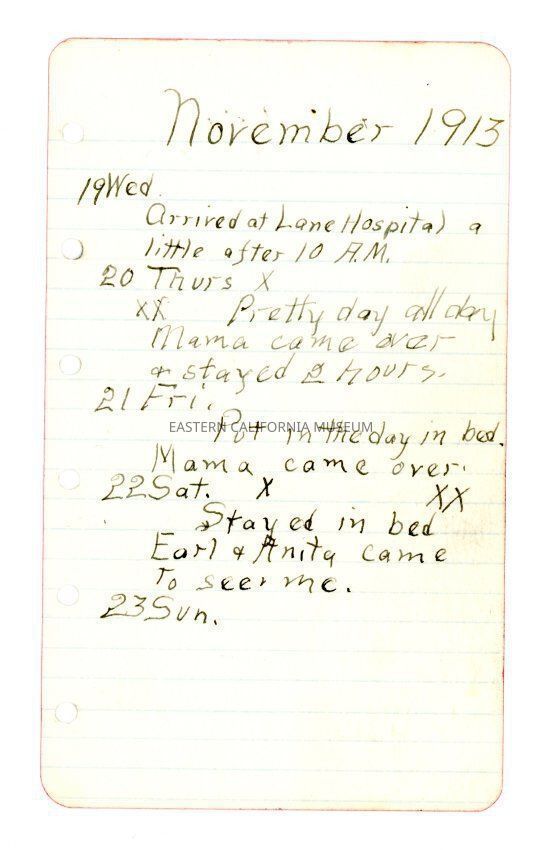 November 1913
19 Wed.
Arrived at Lane Hospital a
little after 10 A.M.
20 Thurs X
XX Pretty day all day
Mama came over
& stayed 2 hours.
21 Fri.
EASTERN CALIFORNIA MUSEUM
Put in the day in bed.
Mama came over.
22 Sat. X XX
Stayed in bed
Earl & Anita came
to see me.
23 Sun.